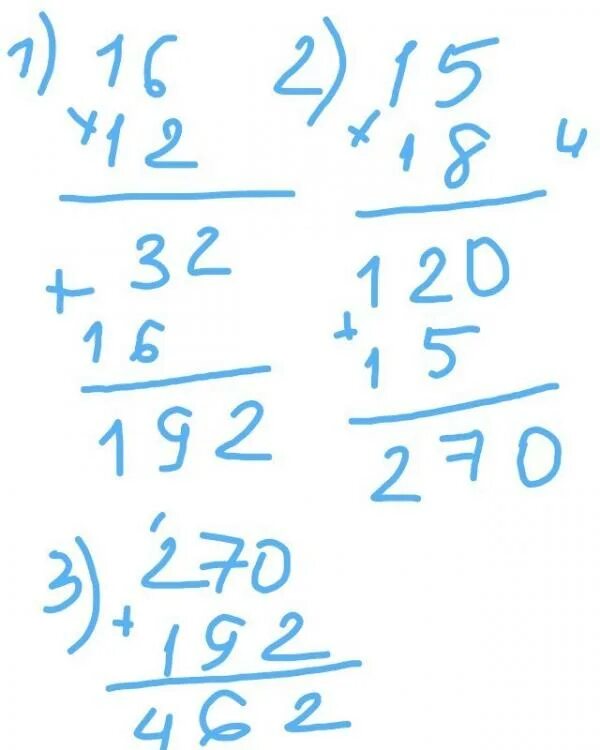 1) 16
× 12
32
+
16
192
2) 15
× 18 4
120
+
15
270
3) 270
+ 192
462